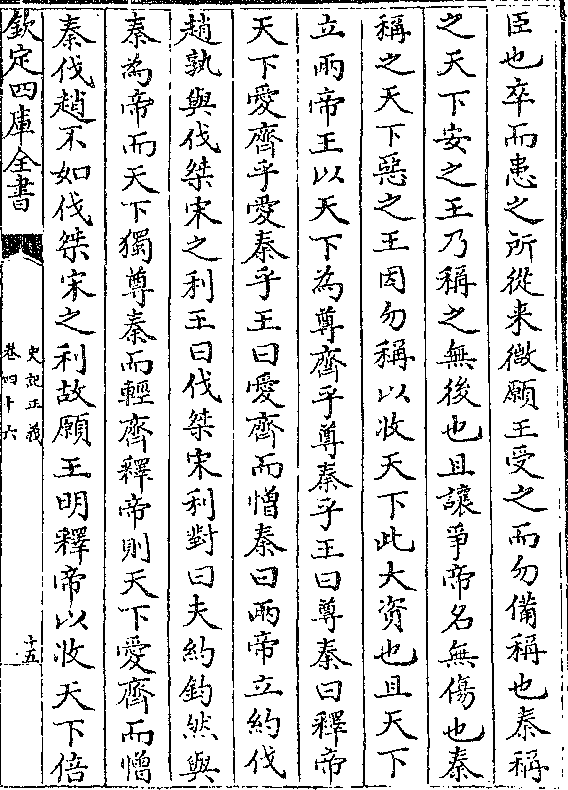 臣也卒而患之所從来微願王受之而勿備稱也秦稱
之天下安之王乃稱之無後也且讓爭帝名無傷也秦
稱之天下惡之王因勿稱以收天下此大資也且天下
立兩帝王以天下為尊齊乎尊秦乎王曰尊秦曰釋帝
天下愛齊乎愛秦乎王曰愛齊而憎秦曰兩帝立約伐
趙孰與伐桀宋之利王曰伐桀宋利對曰夫約鈞然與
秦為帝而天下獨尊秦而輕齊釋帝則天下愛齊而憎
秦伐趙不如伐桀宋之利故願王明釋帝以收天下倍
欽定四庫全書
史記正義
卷四十六
十五